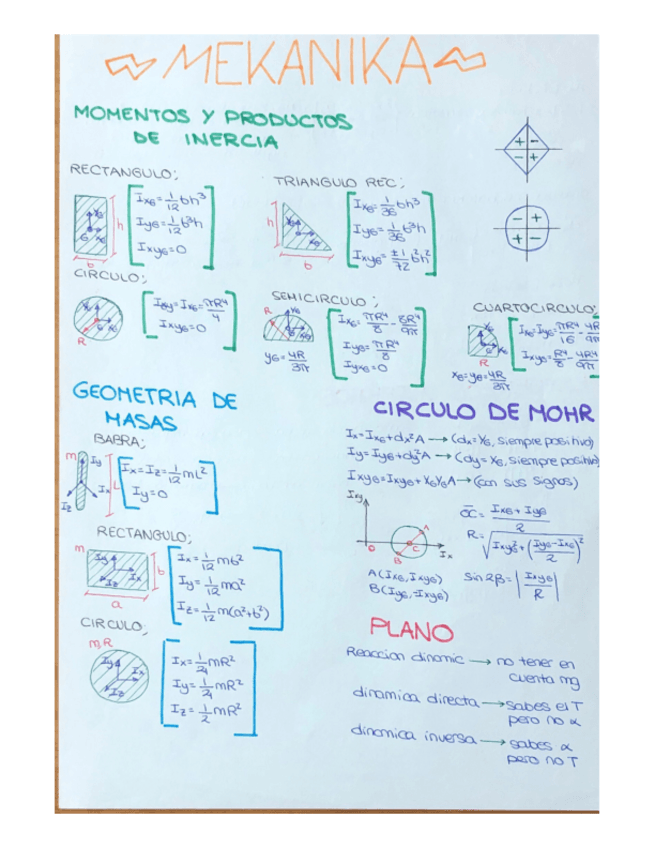 MEKANIKA
MOMENTOS Y PRODUCTOS
DE INERCIA
RECTANGULO;
h
b
YG
G
XG
IxG = 1/12 bh³
IyG = 1/12 b³h
IxyG = 0
TRIANGULO REC;
h
b
YG
XG
IxG = 1/36 bh³
IyG = 1/36 b³h
IxyG = ±1/72 b²h²
- +
+ -
CIRCULO;
R
IxG = πR⁴/4
IxyG = 0
SEMICIRCULO;
R
YG
XG
yG = 4R/3π
IxG = πR⁴/8 - 8R⁴/9π
IyG = πR⁴/8
IyxG = 0
CUARTOCIRCULO;
R
xG = yG = 4R/3π
IxG = IyG = πR⁴/16 - 4R
IxyG = R⁴/8 - 4R⁴/9π
GEOMETRIA DE
MASAS
BARRA;
m
Iy
L
Ix
Iz
Ix = Iz = 1/12 mL²
Iy = 0
RECTANGULO;
m
Iy
Ix
Iz
b
a
Ix = 1/12 mb²
Iy = 1/12 ma²
Iz = 1/12 m(a²+b²)
CIRCULO;
m,R
Iy
Ix
Iz
Ix = 1/4 mR²
Iy = 1/4 mR²
Iz = 1/2 mR²
CIRCULO DE MOHR
Ix = IxG + dx²A → (dx = YG, siempre positivo)
Iy = IyG + dy²A → (dy = XG, siempre positivo)
IxyG = IxyG + XGYGA → (con sus signos)
Ixy
O
C
A
B
Ix
A(IxG, IxyG)
B(IyG, -IxyG)
OC = IxG + IyG / 2
R = √IxyG² + (IyG - IxG / 2)²
sin2β = |IxyG / R|
PLANO
Reaccion dinamic → no tener en
cuenta mg
dinamica directa → sabes el T
pero no α
dinamica inversa → sabes α
pero no T